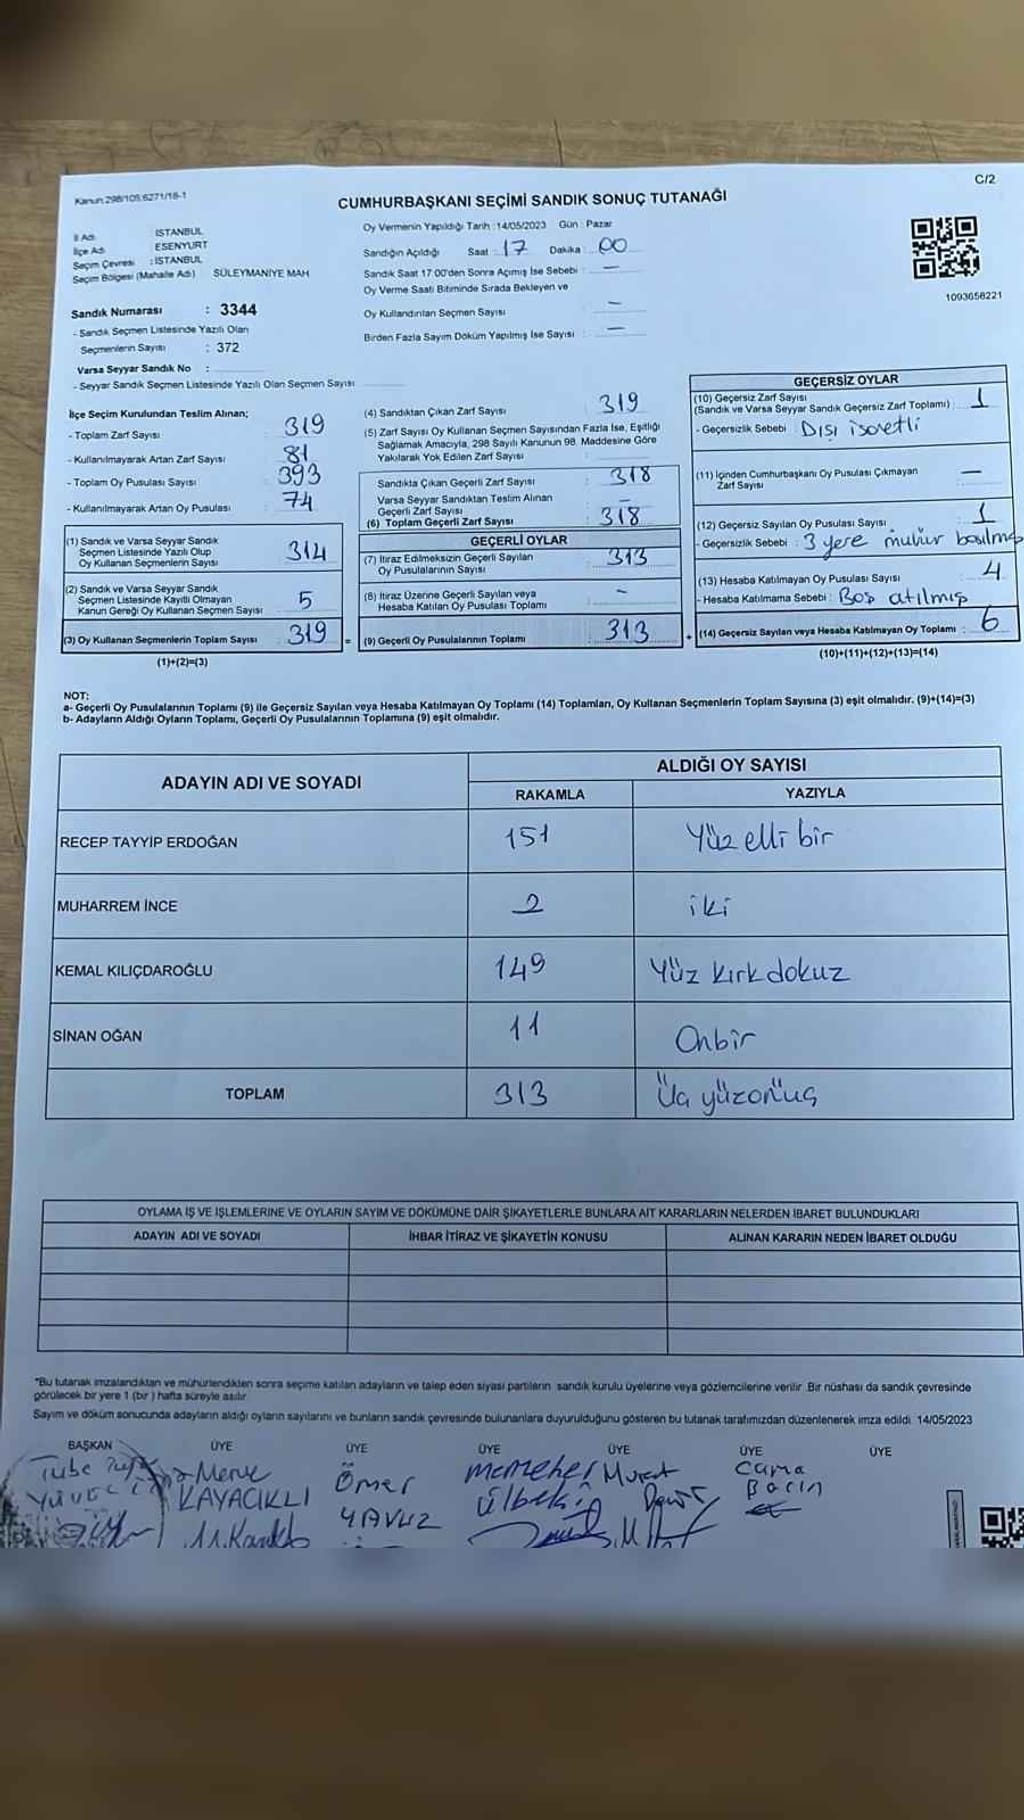 Kanun:298/105:6271/16-1
C/2
CUMHURBAŞKANI SEÇİMİ SANDIK SONUÇ TUTANAĞI
İl Adı İSTANBUL
İlçe Adı ESENYURT
Seçim Çevresi : İSTANBUL
Seçim Bölgesi (Mahalle Adı) SÜLEYMANİYE MAH
Sandık Numarası : 3344
- Sandık Seçmen Listesinde Yazılı Olan
Seçmenlerin Sayısı : 372
Varsa Seyyar Sandık No :
- Seyyar Sandık Seçmen Listesinde Yazılı Olan Seçmen Sayısı
Oy Vermenin Yapıldığı Tarih :14/05/2023 Gün : Pazar
Sandığın Açıldığı Saat : 17 Dakika : 00
Sandık Saat 17.00'den Sonra Açımış İse Sebebi : —
Oy Verme Saati Bitiminde Sırada Bekleyen ve
Oy Kullandırılan Seçmen Sayısı : —
Birden Fazla Sayım Döküm Yapılmış İse Sayısı : —
1093658221
İlçe Seçim Kurulundan Teslim Alınan;
- Toplam Zarf Sayısı : 319
- Kullanılmayarak Artan Zarf Sayısı : 81
- Toplam Oy Pusulası Sayısı : 393
- Kullanılmayarak Artan Oy Pusulası : 74
(1) Sandık ve Varsa Seyyar Sandık
Seçmen Listesinde Yazılı Olup
Oy Kullanan Seçmenlerin Sayısı : 314
(2) Sandık ve Varsa Seyyar Sandık
Seçmen Listesinde Kayıtlı Olmayan
Kanun Gereği Oy Kullanan Seçmen Sayısı : 5
(3) Oy Kullanan Seçmenlerin Toplam Sayısı : 319
(1)+(2)=(3)
(4) Sandıktan Çıkan Zarf Sayısı : 319
(5) Zarf Sayısı Oy Kullanan Seçmen Sayısından Fazla İse, Eşitliği
Sağlamak Amacıyla, 298 Sayılı Kanunun 98. Maddesine Göre
Yakılarak Yok Edilen Zarf Sayısı :
Sandıkta Çıkan Geçerli Zarf Sayısı : 318
Varsa Seyyar Sandıktan Teslim Alınan
Geçerli Zarf Sayısı : —
(6) Toplam Geçerli Zarf Sayısı : 318
GEÇERLİ OYLAR
(7) İtiraz Edilmeksizin Geçerli Sayılan
Oy Pusulalarının Sayısı : 313
(8) İtiraz Üzerine Geçerli Sayılan veya
Hesaba Katılan Oy Pusulası Toplamı : —
= (9) Geçerli Oy Pusulalarının Toplamı : 313
GEÇERSİZ OYLAR
(10) Geçersiz Zarf Sayısı
(Sandık ve Varsa Seyyar Sandık Geçersiz Zarf Toplamı) : 1
- Geçersizlik Sebebi : Dışı isaretli
(11) İçinden Cumhurbaşkanı Oy Pusulası Çıkmayan
Zarf Sayısı : —
(12) Geçersiz Sayılan Oy Pusulası Sayısı : 1
- Geçersizlik Sebebi : 3 yere mühür basılmış
(13) Hesaba Katılmayan Oy Pusulası Sayısı : 4
- Hesaba Katılmama Sebebi : Boş atılmış
+ (14) Geçersiz Sayılan veya Hesaba Katılmayan Oy Toplamı : 6
(10)+(11)+(12)+(13)=(14)
NOT:
a- Geçerli Oy Pusulalarının Toplamı (9) ile Geçersiz Sayılan veya Hesaba Katılmayan Oy Toplamı (14) Toplamları, Oy Kullanan Seçmenlerin Toplam Sayısına (3) eşit olmalıdır. (9)+(14)=(3)
b- Adayların Aldığı Oyların Toplamı, Geçerli Oy Pusulalarının Toplamına (9) eşit olmalıdır.
ADAYIN ADI VE SOYADI ALDIĞI OY SAYISI
RAKAMLA YAZIYLA
RECEP TAYYİP ERDOĞAN 151 Yüz elli bir
MUHARREM İNCE 2 iki
KEMAL KILIÇDAROĞLU 149 Yüz kırk dokuz
SİNAN OĞAN 11 Onbir
TOPLAM 313 Üç yüzonüç
OYLAMA İŞ VE İŞLEMLERİNE VE OYLARIN SAYIM VE DÖKÜMÜNE DAİR ŞİKAYETLERLE BUNLARA AİT KARARLARIN NELERDEN İBARET BULUNDUKLARI
ADAYIN ADI VE SOYADI İHBAR İTİRAZ VE ŞİKAYETİN KONUSU ALINAN KARARIN NEDEN İBARET OLDUĞU
*Bu tutanak imzalandıktan ve mühürlendikten sonra seçime katılan adayların ve talep eden siyasi partilerin sandık kurulu üyelerine veya gözlemcilerine verilir. Bir nüshası da sandık çevresinde
görülecek bir yere 1 (bir ) hafta süreyle asılır.
Sayım ve döküm sonucunda adayların aldığı oyların sayılarını ve bunların sandık çevresinde bulunanlara duyurulduğunu gösteren bu tutanak tarafımızdan düzenlenerek imza edildi. 14/05/2023
BAŞKAN ÜYE ÜYE ÜYE ÜYE ÜYE ÜYE
Merve Ömer Murat Cuma
KAYACIKLI YAVUZ Ülbeki
M.Kayacıklı